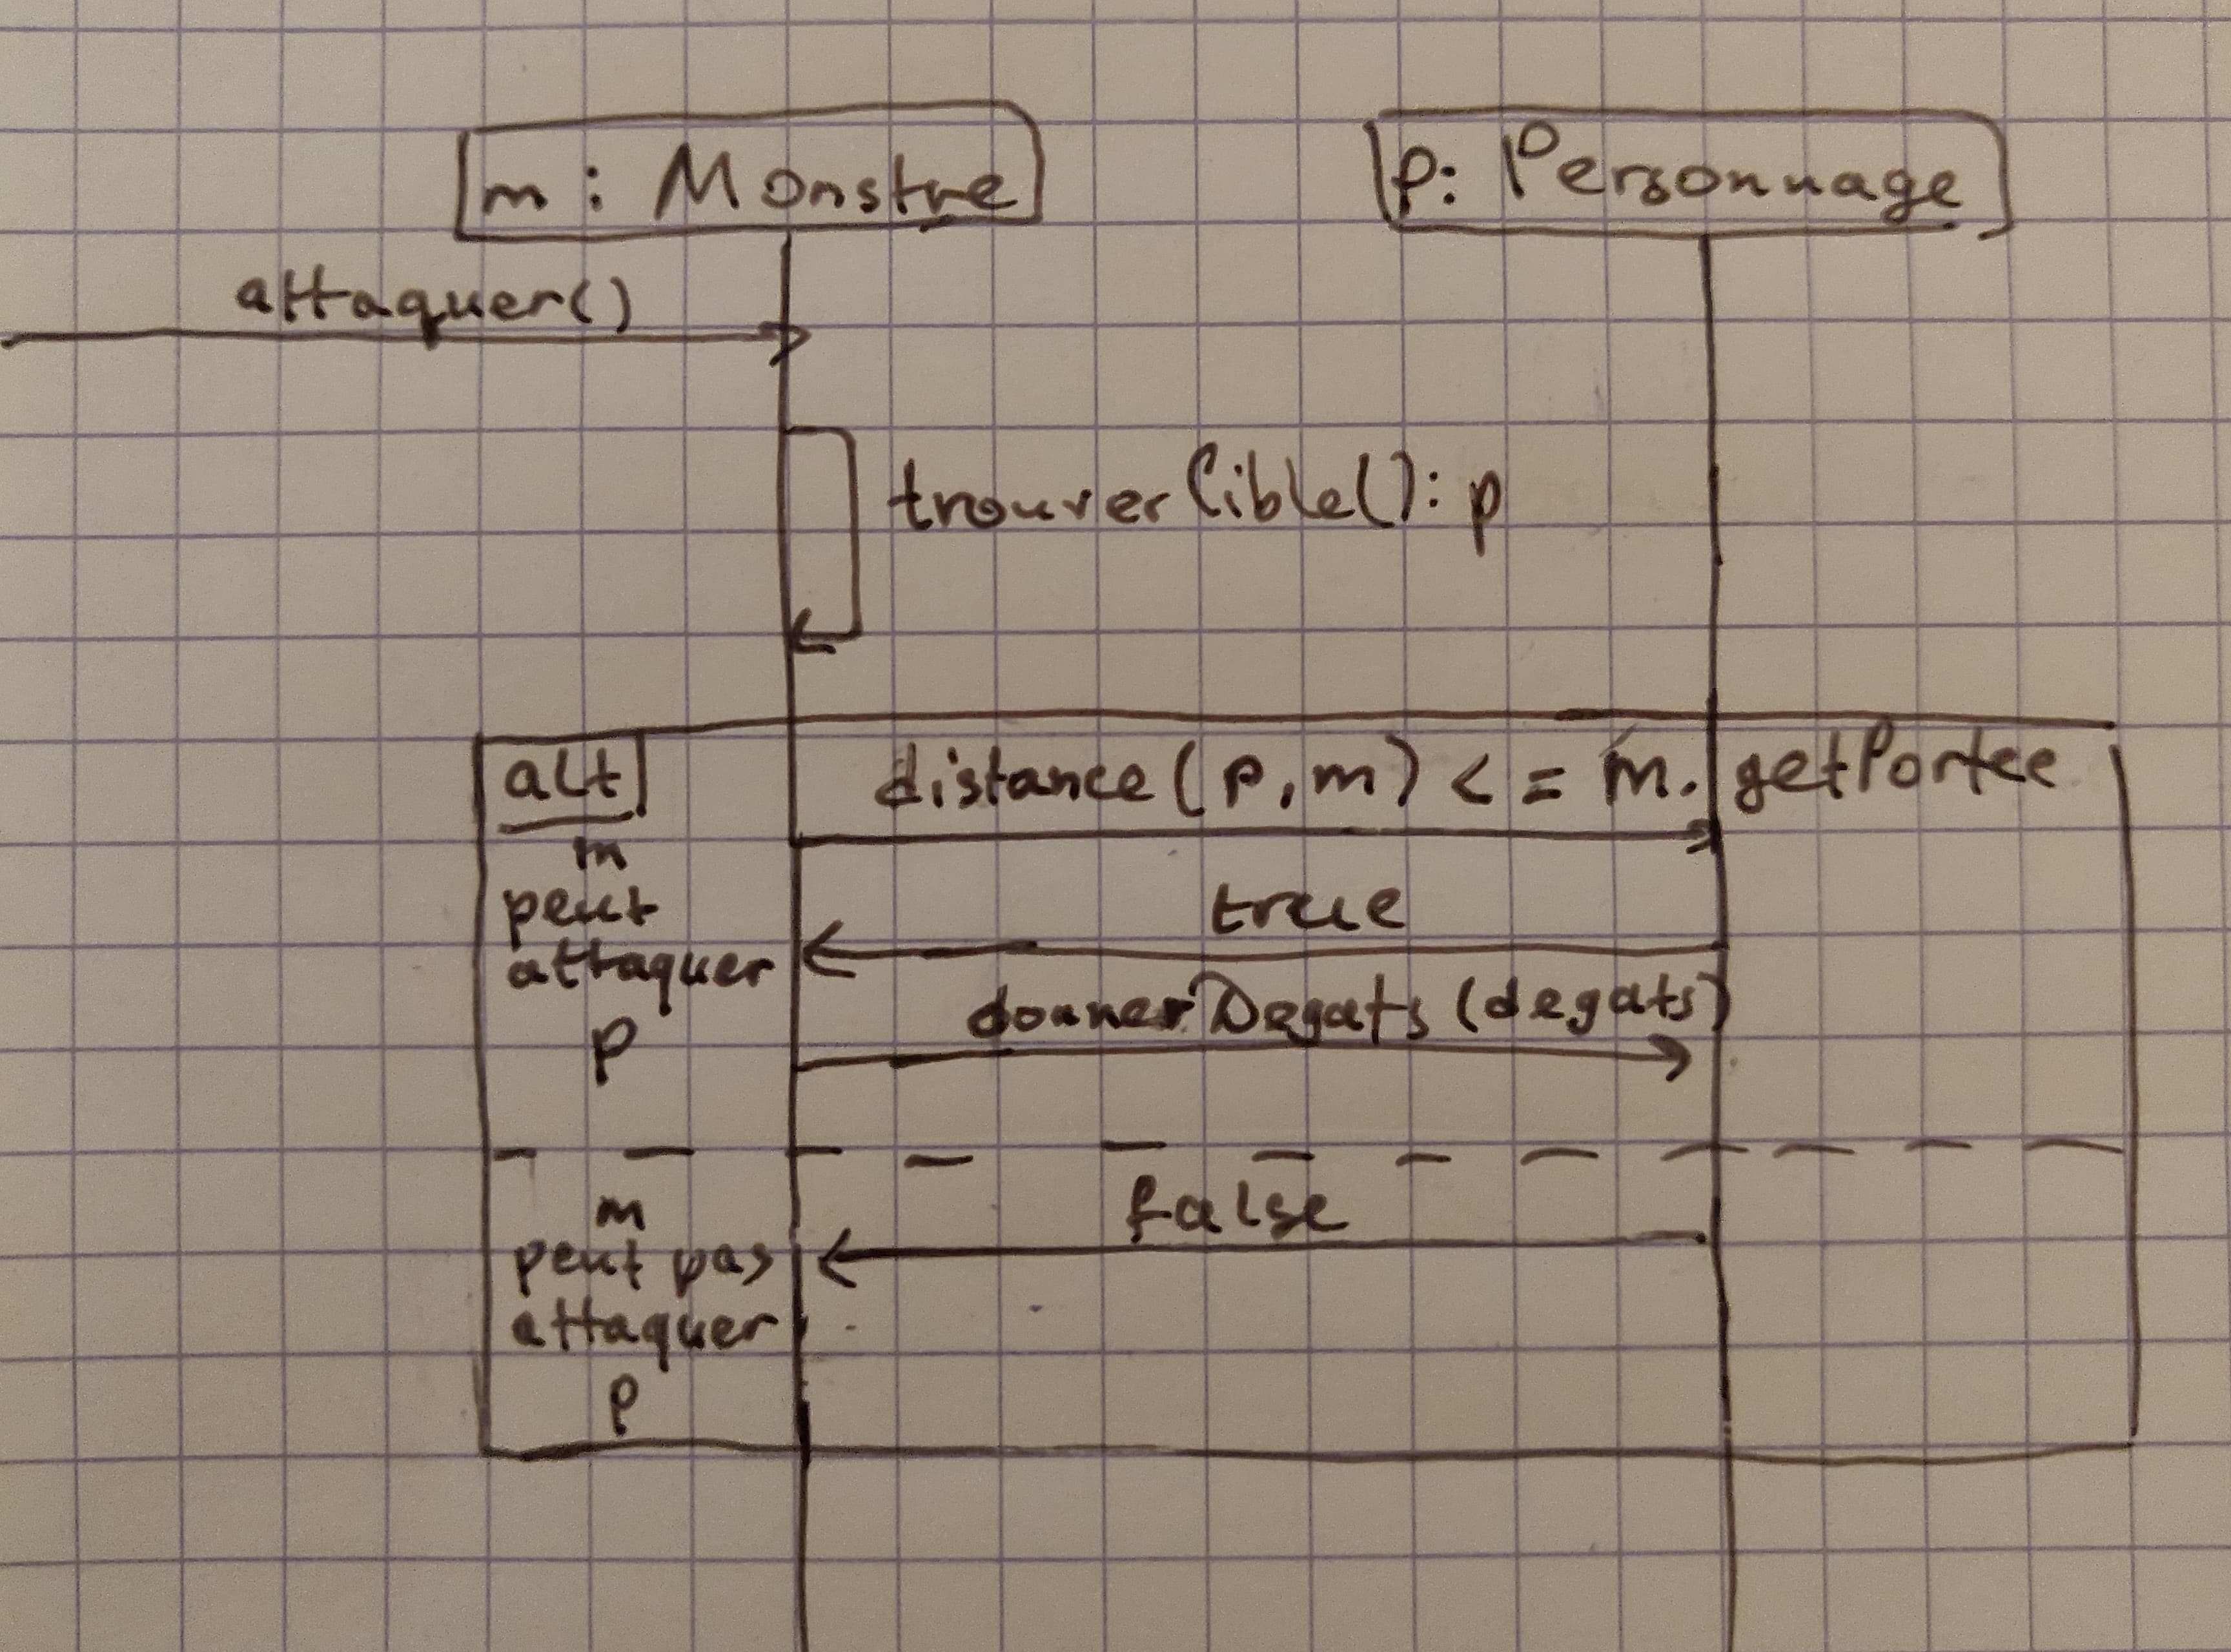 m : Monstre
p: Personnage
attaquer()
trouverCible(): p
alt
distance(p,m) <= m.getPortee
m
peut
attaquer
p
true
donnerDegats(degats)
m
peut pas
attaquer
p
false